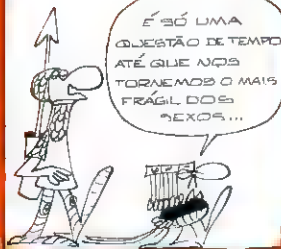 É SÓ UMA
QUESTÃO DE TEMPO
ATÉ QUE NOS
TORNEMOS O MAIS
FRÁGIL DOS
SEXOS...